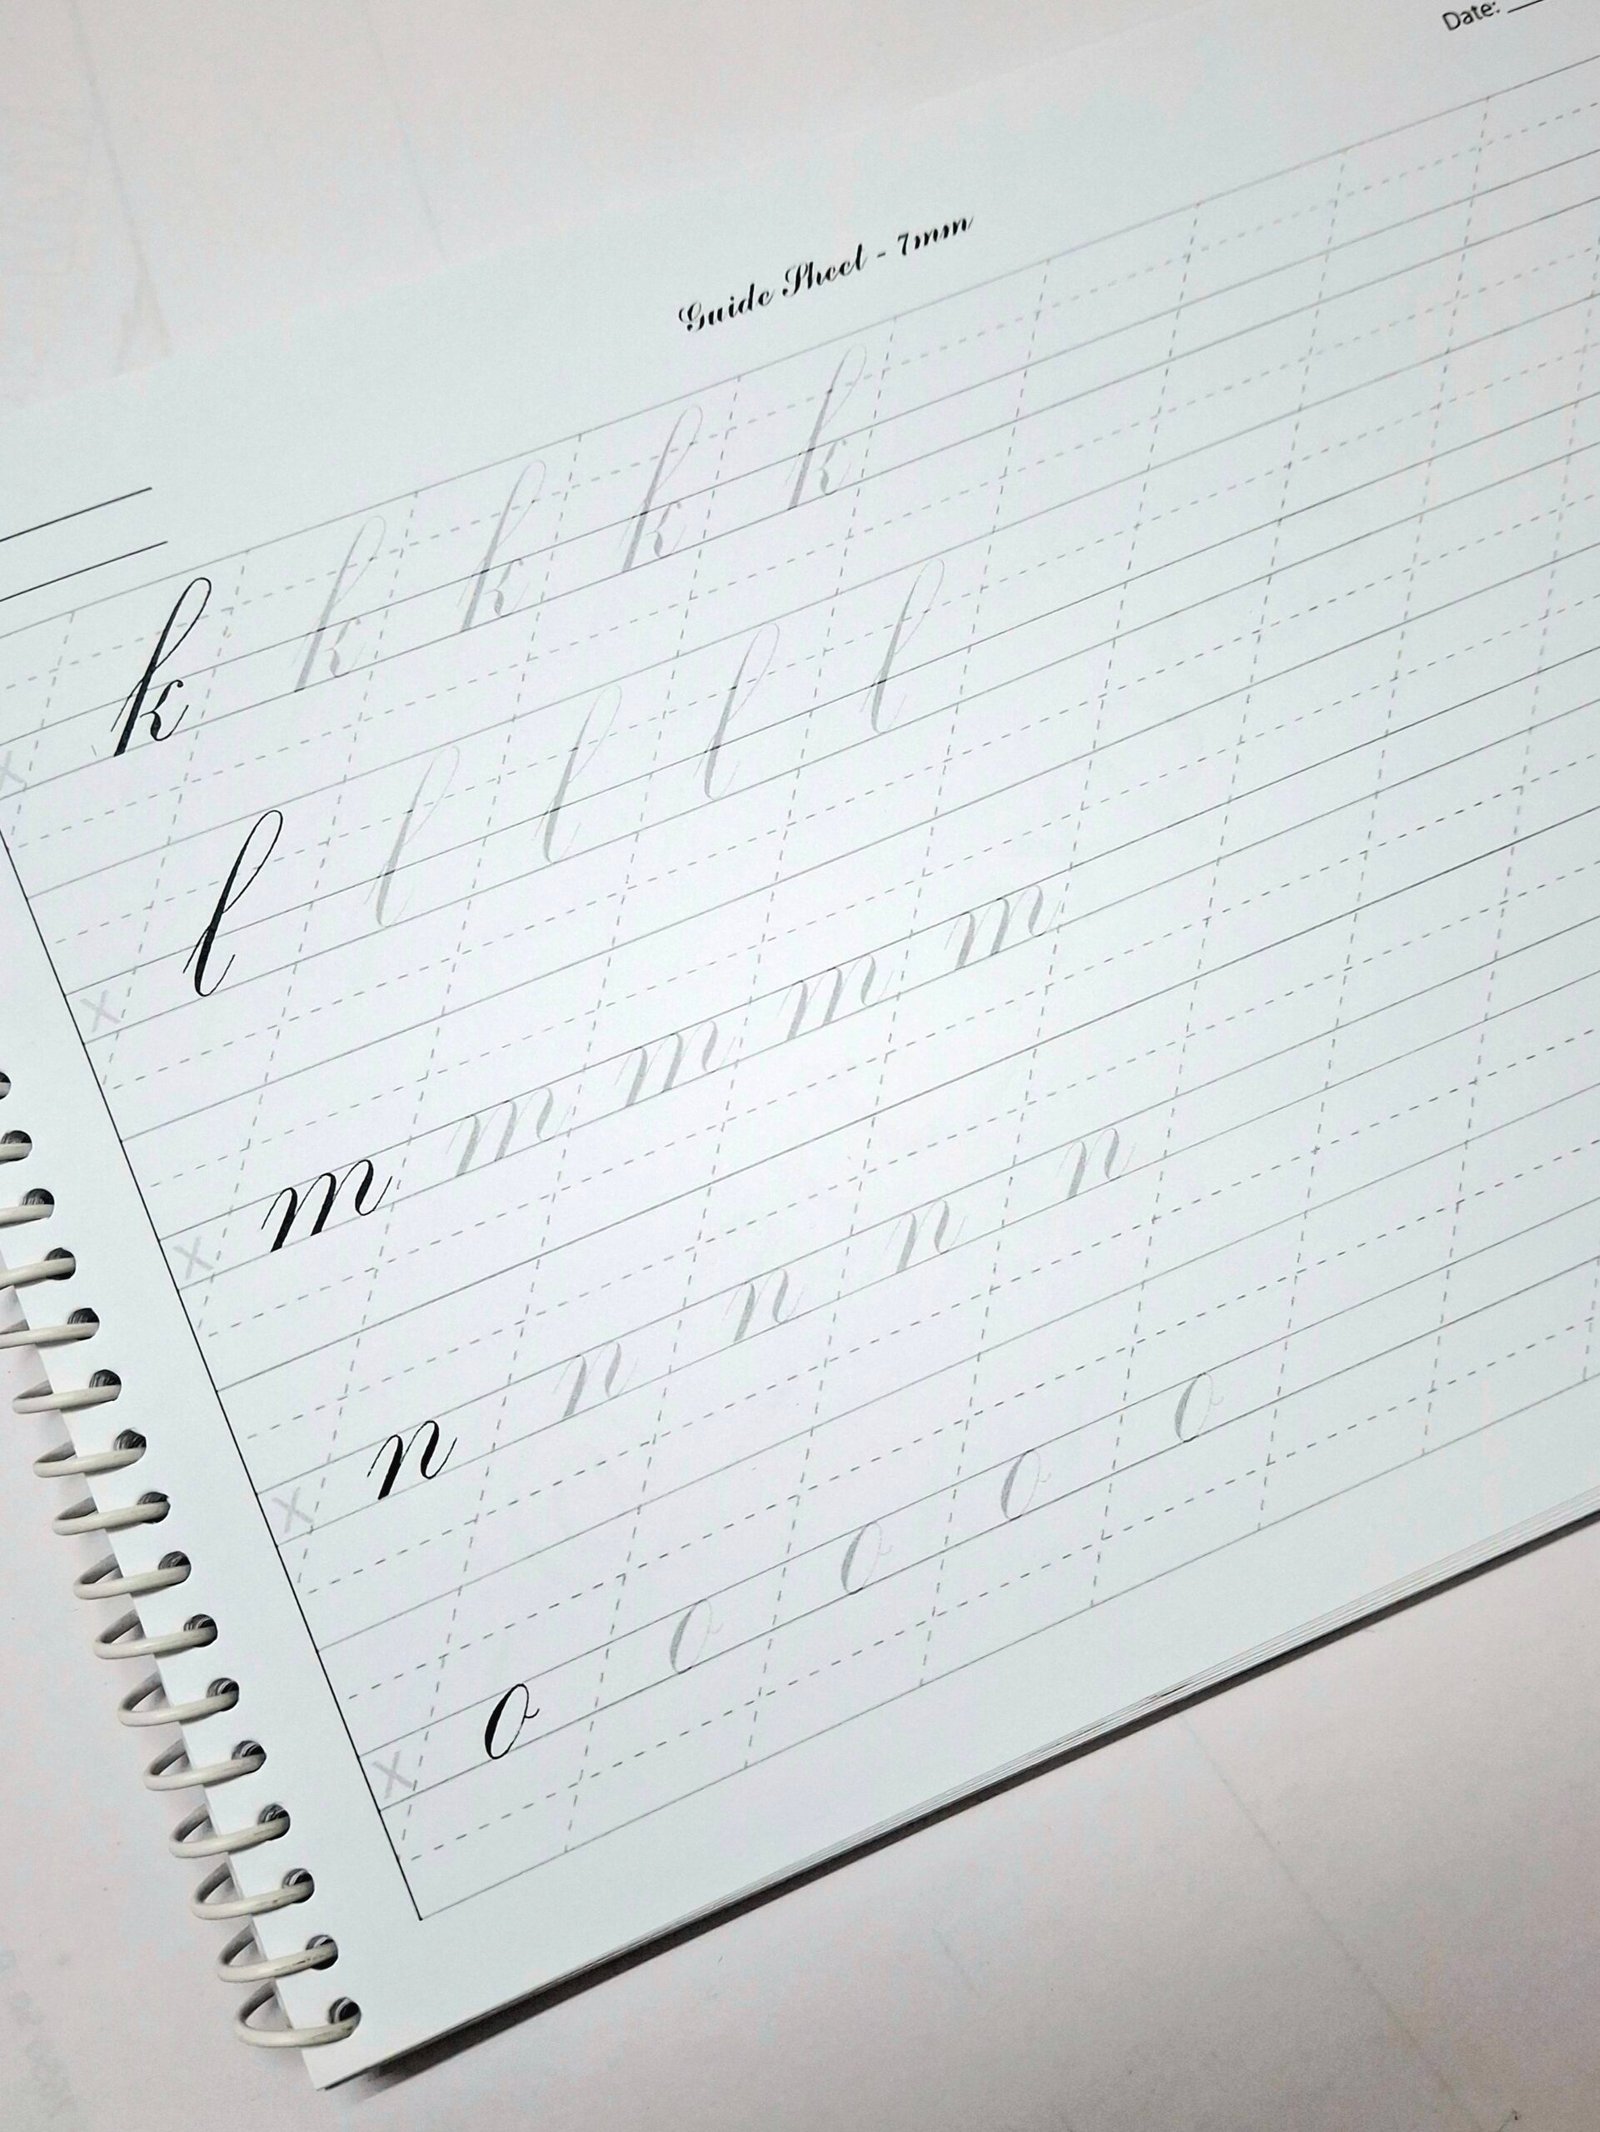 Date:
Guide Sheet - 7mm
k k k k k
x
l l l l l
x
m m m m m
x
n n n n n
x
o o o o o
x